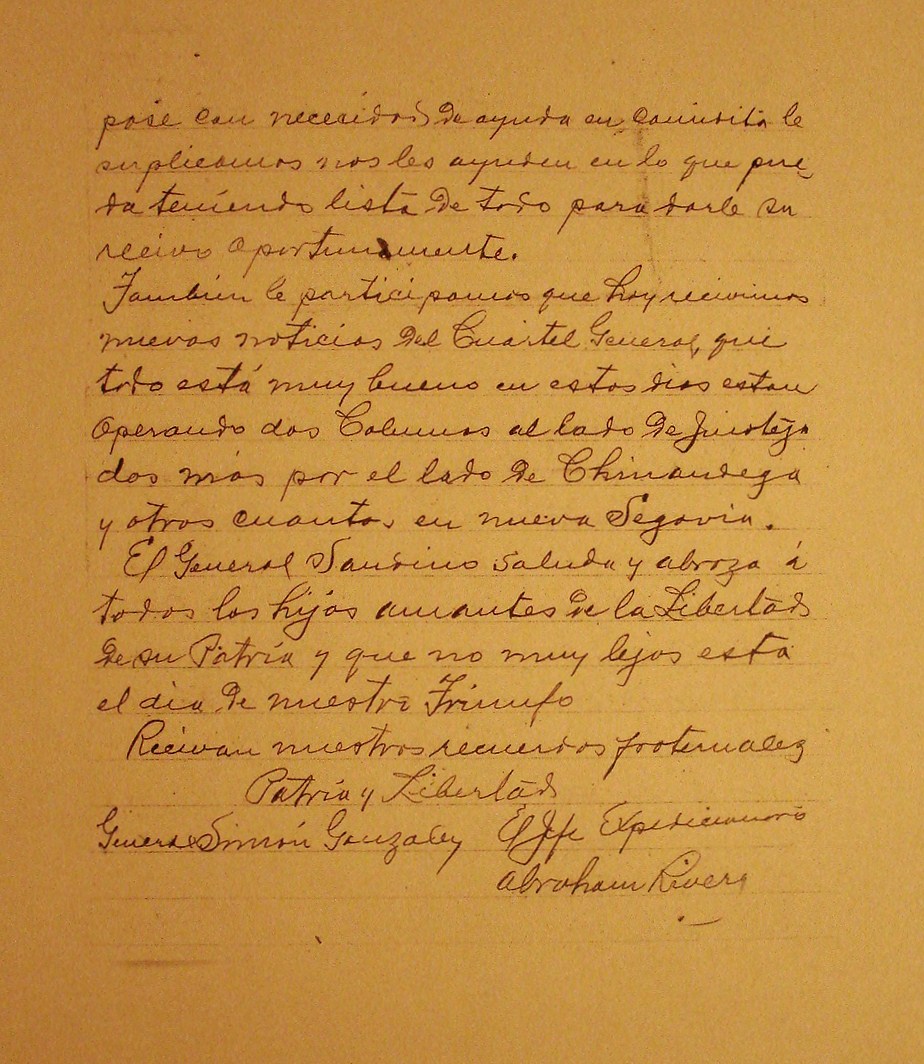 pase con nececidad de ayuda en comidita le
suplicamos nos les ayuden en lo que pue
da teniendo lista de todo para darle su
recivo oportunamente.
Tambien le participamos que hoy recivimos
nuevas noticias del Cuartel General, que
todo está muy bueno en estos dias estan
operando dos Columnas al lado de Jinotega
dos más por el lado de Chinandega
y otros cuantos en nueva Segovia.
El General Sandino saluda y abraza á
todos los hijos amantes de la Libertad
de su Patria y que no muy lejos esta
el dia de nuestro Triunfo
Recivan nuestros recuerdos fraternales
Patria y Libertad
General Simón Gonzalez El Jefe Expedicionario
Abraham Rivera